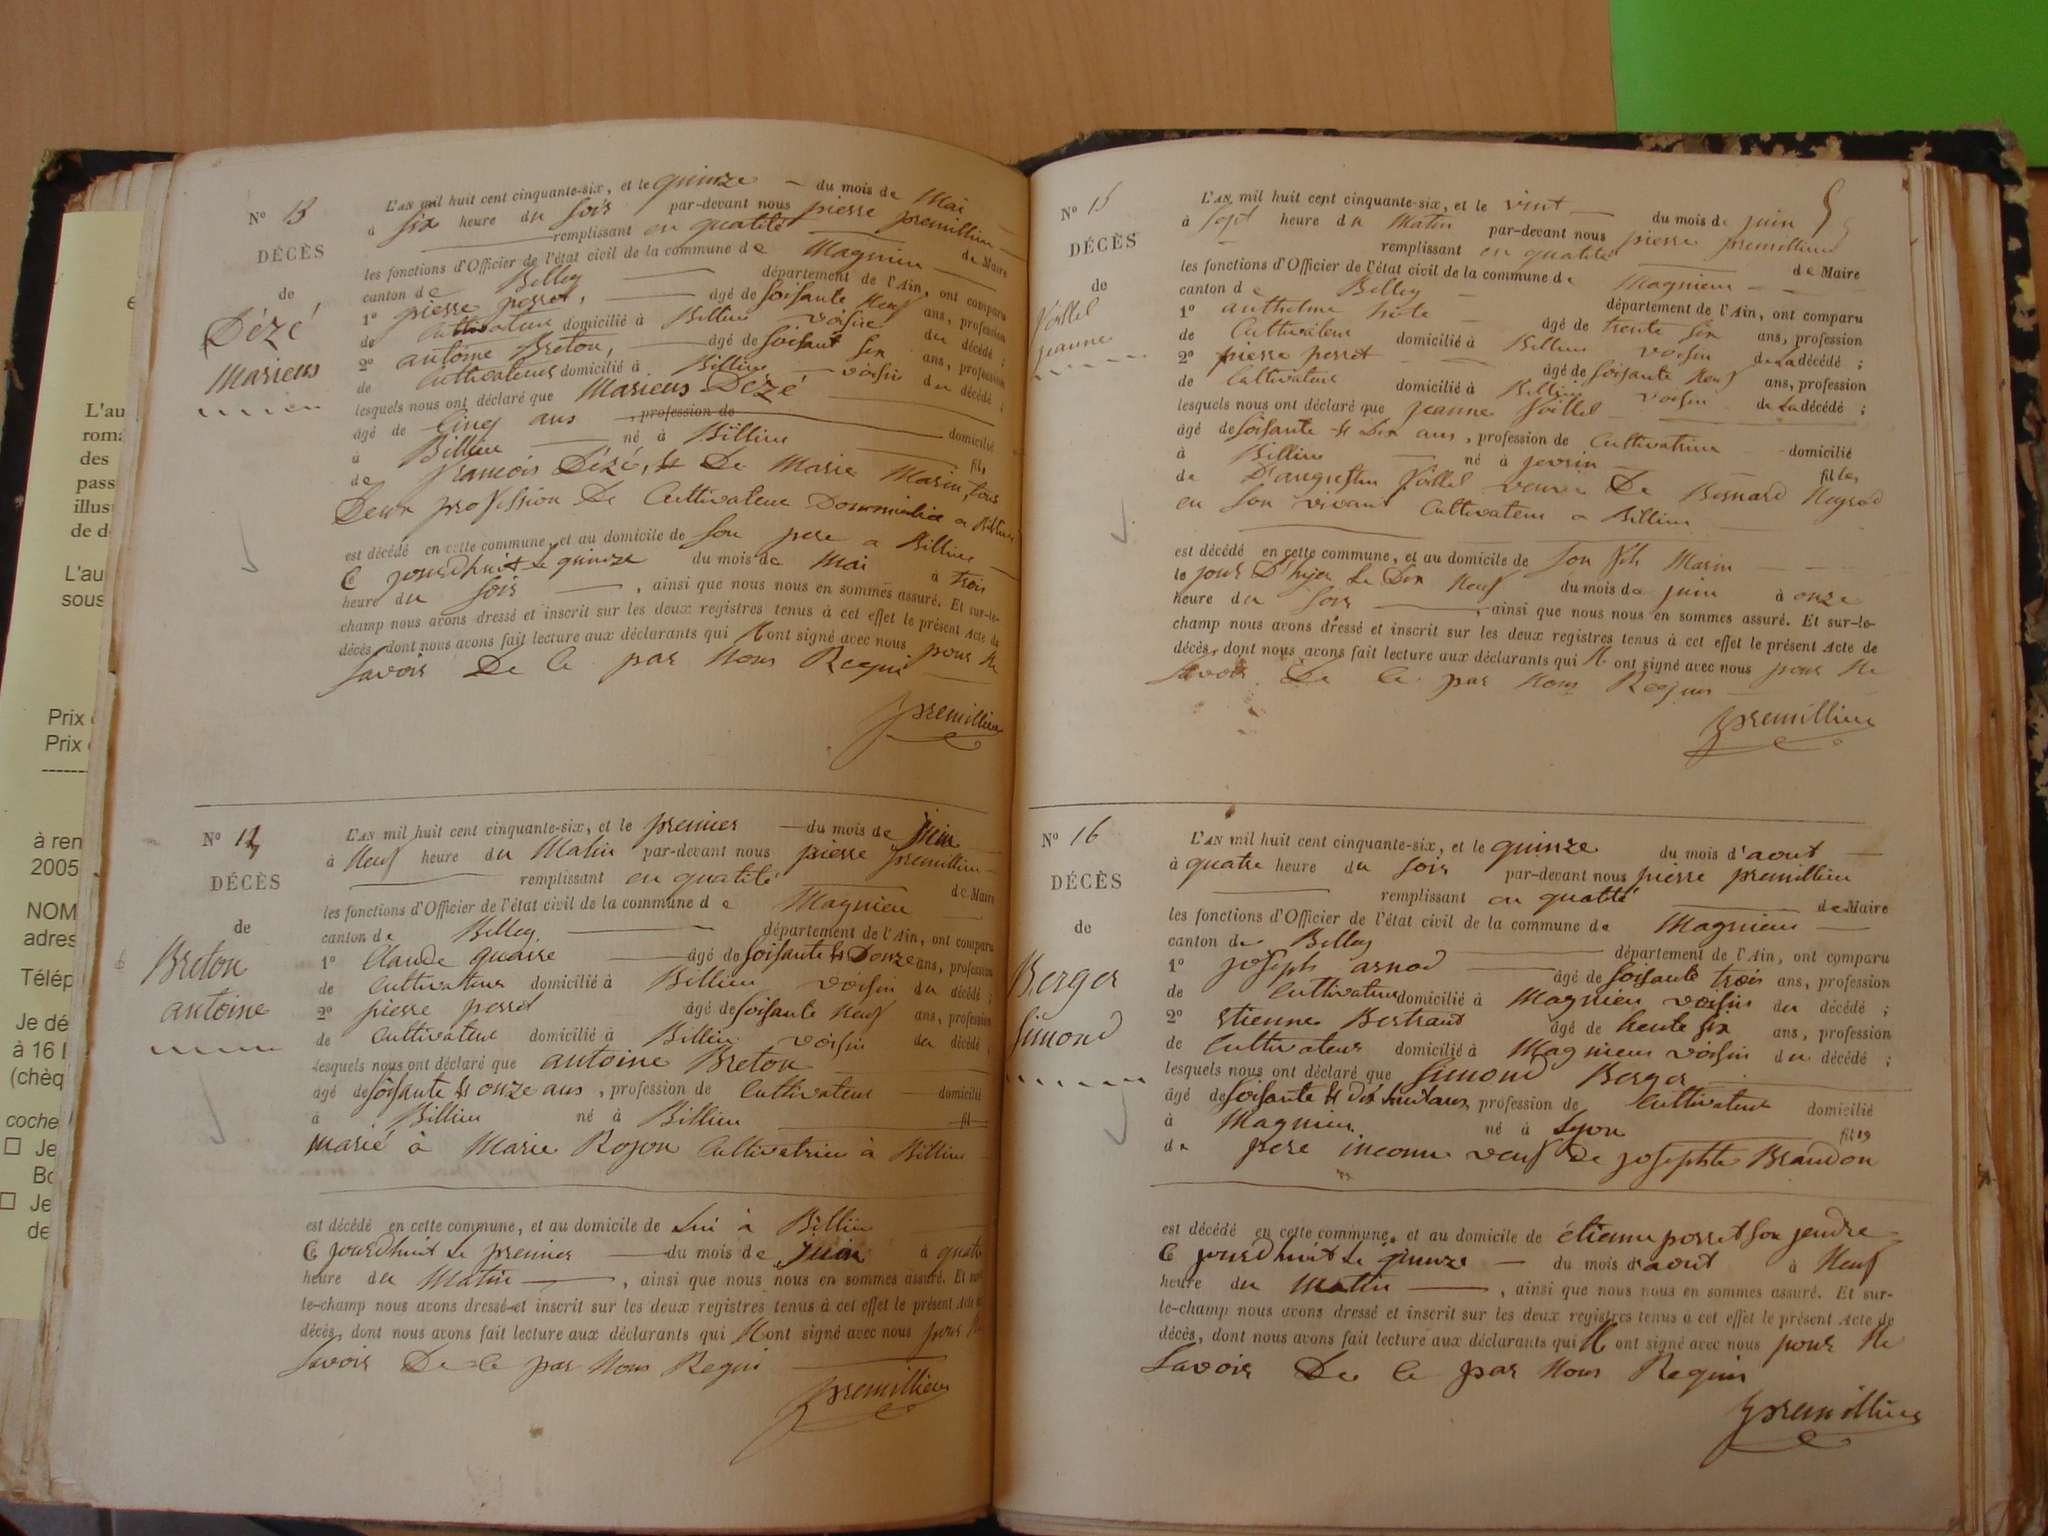 N° 13
DÉCÈS
de
Dézé
Marieus
L'AN mil huit cent cinquante-six, et le quinze du mois de Mai
à six heure du soir par-devant nous pierre premillieu
remplissant en qualité de Maire
les fonctions d'Officier de l'état civil de la commune de Magnieu
canton de Belley département de l'Ain, ont comparu
1° pierre perret, âgé de soisante neuf ans, profession
de Cultivateur domicilié à Billieu voisin du décédé ;
2° antoine Breton, âgé de soisant six ans, profession
de Cultivateur domicilié à Billieu voisin du décédé ;
lesquels nous ont déclaré que Marieus Dézé
âgé de Cinq ans , profession de domicilié
à Billieu né à Billieu fils
de francois Dézé, et De Marie Marin, tous
Deux profession De Cultivateur a Billieu
est décédé en cette commune, et au domicile de son pere a Billieu
Ce jourdhuit le quinze du mois de Mai à trois
heure du soir , ainsi que nous nous en sommes assuré. Et sur-le-
champ nous avons dressé et inscrit sur les deux registres tenus à cet effet le présent Acte de
décès, dont nous avons fait lecture aux déclarants qui N ont signé avec nous pour ne
savoir De Ce par nous Requi
premillieu
N° 14
DÉCÈS
de
Breton
antoine
L'AN mil huit cent cinquante-six, et le premier du mois de juin
à neuf heure du Matin par-devant nous pierre premillieu
remplissant en qualité de Maire
les fonctions d'Officier de l'état civil de la commune de Magnieu
canton de Belley département de l'Ain, ont comparu
1° Claude quaire âgé de soisante et Douze ans, profession
de Cultivateur domicilié à Billieu voisin du décédé ;
2° pierre perret âgé de soisante neuf ans, profession
de Cultivateur domicilié à Billieu voisin du décédé ;
lesquels nous ont déclaré que antoine Breton
âgé de soisante et onze ans , profession de Cultivateur domicilié
à Billieu né à Billieu fil
marié à Marie Rojon Cultivatrice à Billieu
est décédé en cette commune, et au domicile de Lui à Billieu
Ce jourdhuit le premier du mois de juin à quatre
heure du Matin , ainsi que nous nous en sommes assuré. Et sur-
le-champ nous avons dressé et inscrit sur les deux registres tenus à cet effet le présent Acte de
décès, dont nous avons fait lecture aux déclarants qui N ont signé avec nous pour ne
savoir De Ce par nous Requi
premillieu
N° 15
DÉCÈS
de
jeanne
L'AN mil huit cent cinquante-six, et le vint du mois de juin
à sept heure du Matin par-devant nous pierre premillieu
remplissant en qualité de Maire
les fonctions d'Officier de l'état civil de la commune de Magnieu
canton de Belley département de l'Ain, ont comparu
1° anthelme âgé de trente six ans, profession
de Cultivateur domicilié à Billieu voisin de La décédé ;
2° pierre perret âgé de soisante neuf ans, profession
de Cultivateur domicilié à Billieu voisin de La décédé ;
lesquels nous ont déclaré que jeanne
âgé de soisante et Dix ans , profession de Cultivatrice domicilié
à Billieu né à fille
de D'augustin veuve De Bernard
en son vivant Cultivateur a Billieu
est décédé en cette commune, et au domicile de son fils Marin
le jour D'hyer Le Dix neuf du mois de juin à onze
heure du soir , ainsi que nous nous en sommes assuré. Et sur-le-
champ nous avons dressé et inscrit sur les deux registres tenus à cet effet le présent Acte de
décès, dont nous avons fait lecture aux déclarants qui N ont signé avec nous pour ne
savoir De Ce par nous Requis
premillieu
N° 16
DÉCÈS
de
Berger
Simond
L'AN mil huit cent cinquante-six, et le quinze du mois d'aout
à quatre heure du soir par-devant nous pierre premillieu
remplissant en qualité de Maire
les fonctions d'Officier de l'état civil de la commune de Magnieu
canton de Belley département de l'Ain, ont comparu
1° joseph arnod âgé de soisante trois ans, profession
de Cultivateur domicilié à Magnieu voisin du décédé ;
2° Etienne Bertrand âgé de trente six ans, profession
de Cultivateur domicilié à Magnieu voisin du décédé ;
lesquels nous ont déclaré que Simond Berger
âgé de soisante et dix huit ans, profession de Cultivateur domicilié
à Magnieu né à Lyon fils
de pere inconu veuf De josephte Braudon
est décédé en cette commune, et au domicile de étienne perret son jendre
Ce jourdhuit Le quinze du mois d'aout à neuf
heure du Matin , ainsi que nous nous en sommes assuré. Et sur-
le-champ nous avons dressé et inscrit sur les deux registres tenus à cet effet le présent Acte de
décès, dont nous avons fait lecture aux déclarants qui N ont signé avec nous pour ne
savoir De Ce par nous Requis
premillieu
L'au
roma
des
pass
illus
de d
L'au
sous
Prix
Prix
à ren
2005
NOM
adres
Télép
Je dé
à 16
(chèq
coche
Je
Bo
Je
de